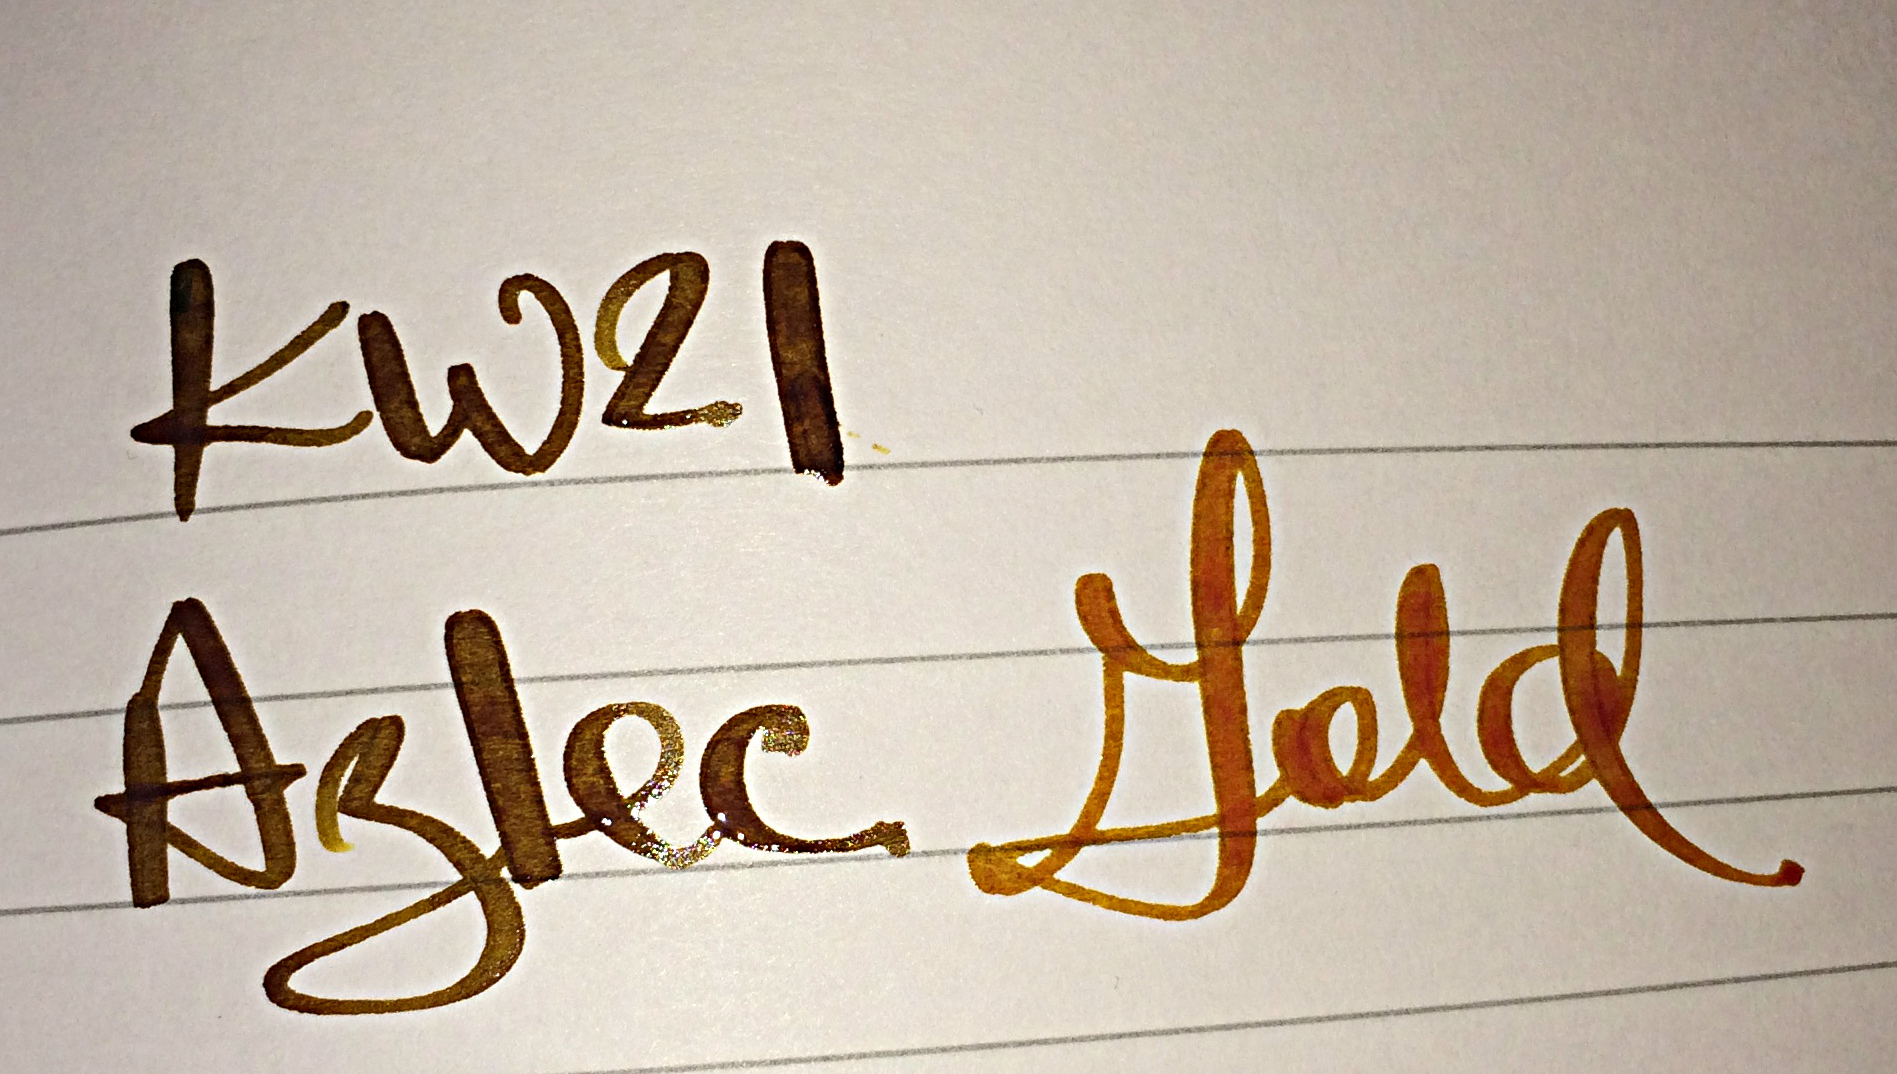 KWZI
Aztec Gold